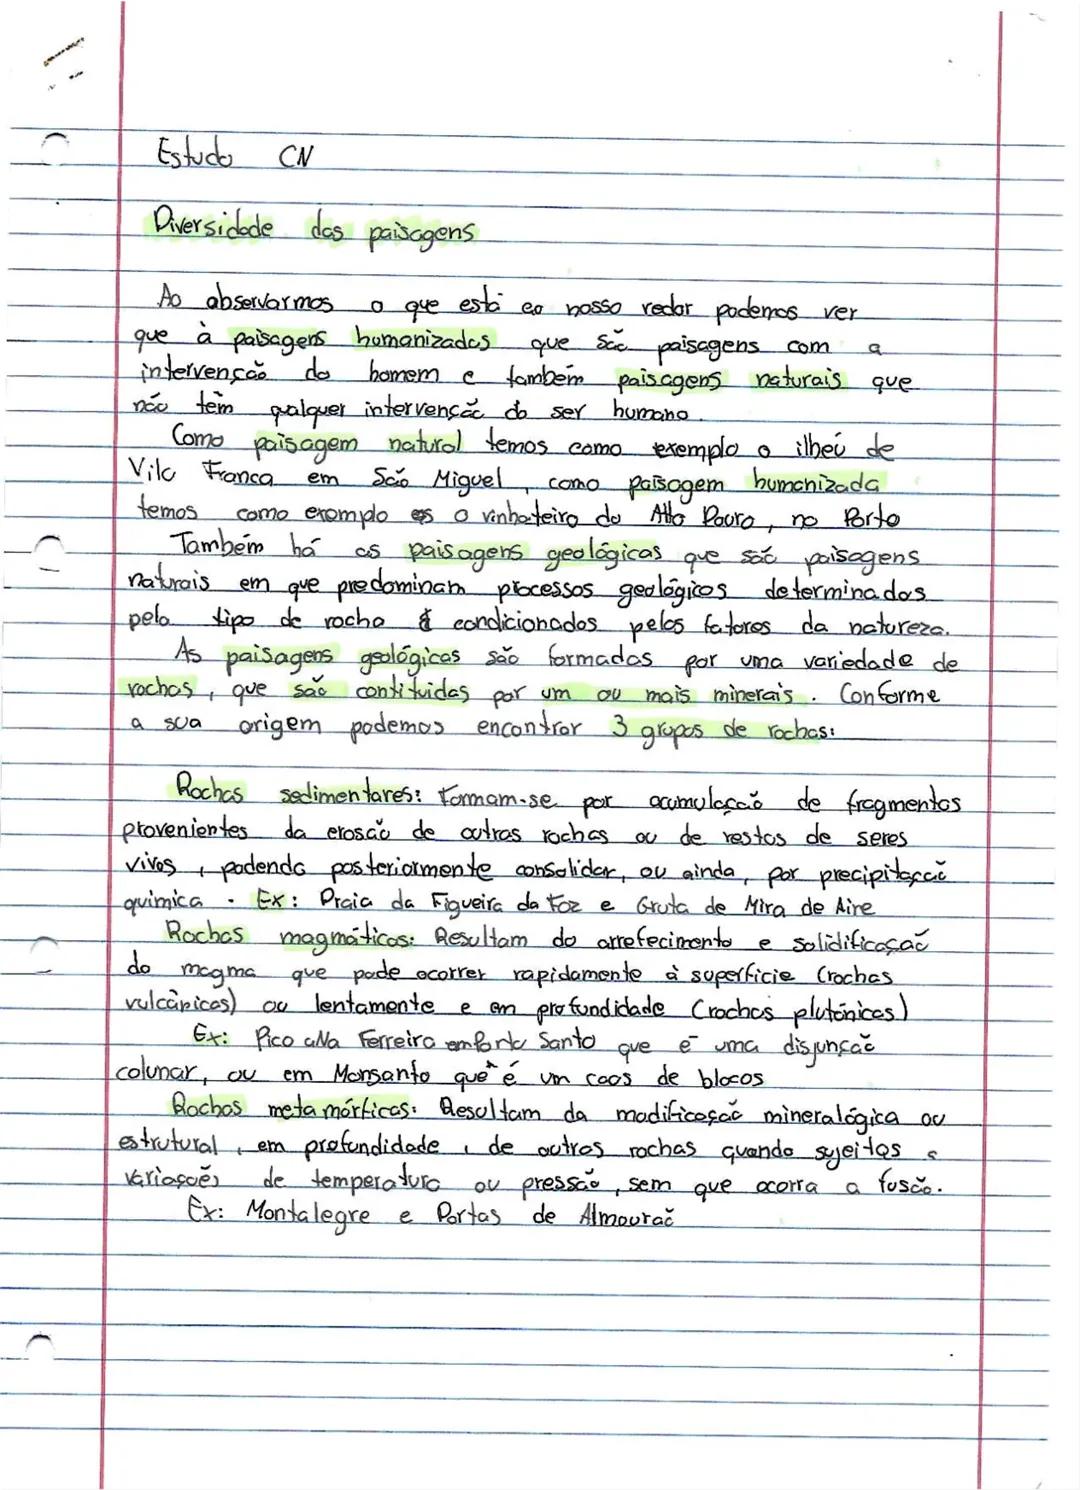 Estudo CN
Diversidade das paisagens
Ao observarmos o que está ao nosso redor podemos ver
que à paisagens humanizadas que são paisagens com a
intervenção do homem e também paisagens naturais que
não têm qualquer intervenção do ser humano.
Como paisagem natural temos como exemplo o ilhéu de
Vila Franca em São Miguel, como paisagem humanizada
temos como exemplo o vinhateiro do Alto Douro, no Porto
Também há as paisagens geológicas que são paisagens
naturais em que predominam processos geológicos determinados
pelo tipo de rocha e condicionados pelos fatores da natureza.
As paisagens geológicas são formadas por uma variedade de
rochas, que são contituidas por um ou mais minerais. Conforme
a sua origem podemos encontrar 3 grupos de rochas:
Rochas sedimentares: Formam-se por acumulação de fragmentos
provenientes da erosão de outras rochas ou de restos de seres
vivos, podendo posteriormente consolidar, ou ainda, por precipitação
quimica. Ex: Praia da Figueira da Foz e Gruta de Mira de Aire
Rochas magmáticas: Resultam do arrefecimento e solidificação
do magma que pode ocorrer rapidamente à superfície (rochas
vulcânicas) ou lentamente e em profundidade (rochas plutónicas)
Ex: Pico aNa Ferreira em Porto Santo que é uma disjunção
colunar, ou em Monsanto que é um caos de blocos
Rochas metamórficas: Resultam da modificação mineralógica ou
estrutural, em profundidade, de outras rochas quando sujeitas a
variações de temperatura ou pressão, sem que ocorra a fusão.
Ex: Montalegre e Portas de Almourão